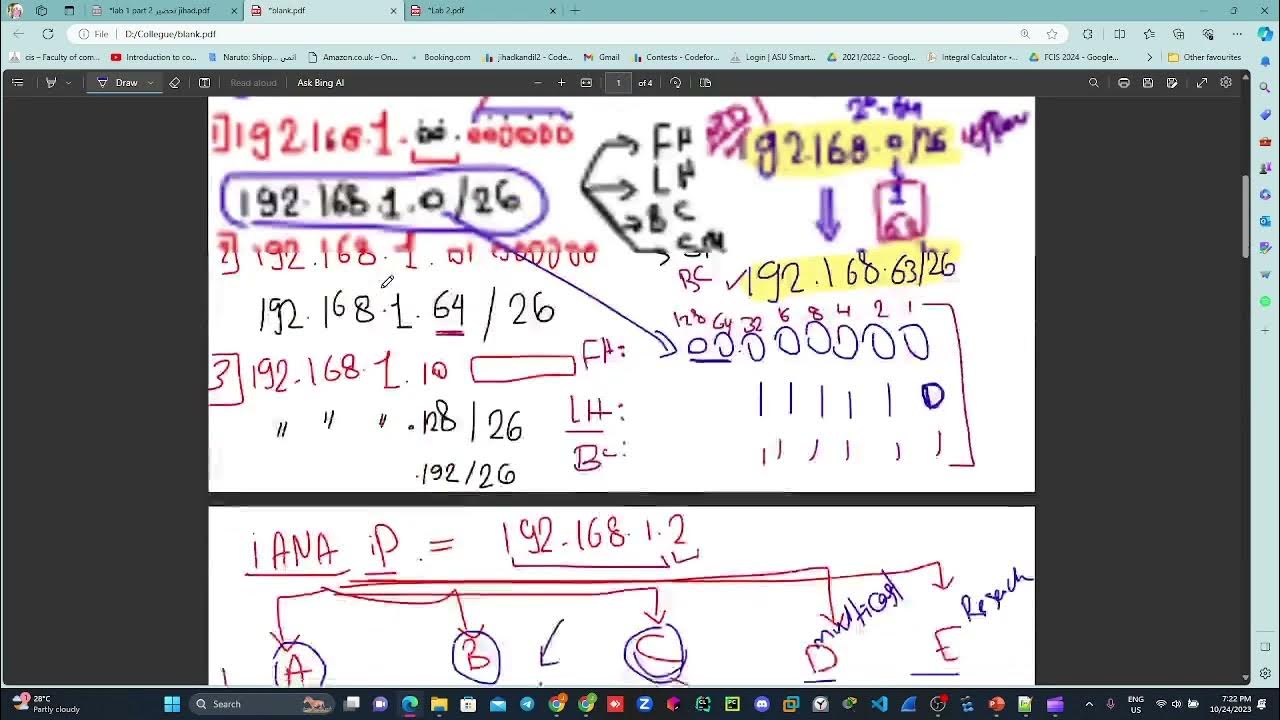 "lab 1 part 2 تحضير jihad.pdf
"blank.pdf
"Lab 2.pdf
File
D:/Collegue/blank.pdf
cis – Faculty of com...
Introduction to co...
Naruto: Shipp
Amazon.co.uk - Onl...
Booking.com
jihadkandil2 - Codef...
Gmail
Contests - Codefor...
Login | ASU Smart...
2021/2022 - Googl...
Integral Calculator •...
FCIS 2024 - Googl...
Other favourites
Draw
Read aloud
Ask Bing AI
1
of 4
1] 192.168.1.00.000000
192.168.1.0/26
FH
LH
BC
SM
192.168.0/26
1
2] 192.168.1.01 000000
BC ✓ 192.168.63/26
192.168.1.64/26
128 64 32 16 8 4 2 1
0 0 0 0 0 0 0 0
3] 192.168.1.10
FH:
" " " .128/26
LH:
1 1 1 1 1 0
.192/26
BC:
1 1 1 1 1 1
IANA iP = 192.168.1.2
A
B
C
D
multicast
E
28°C
Partly cloudy
Search
ENG
US
7:22 PM
10/24/2023